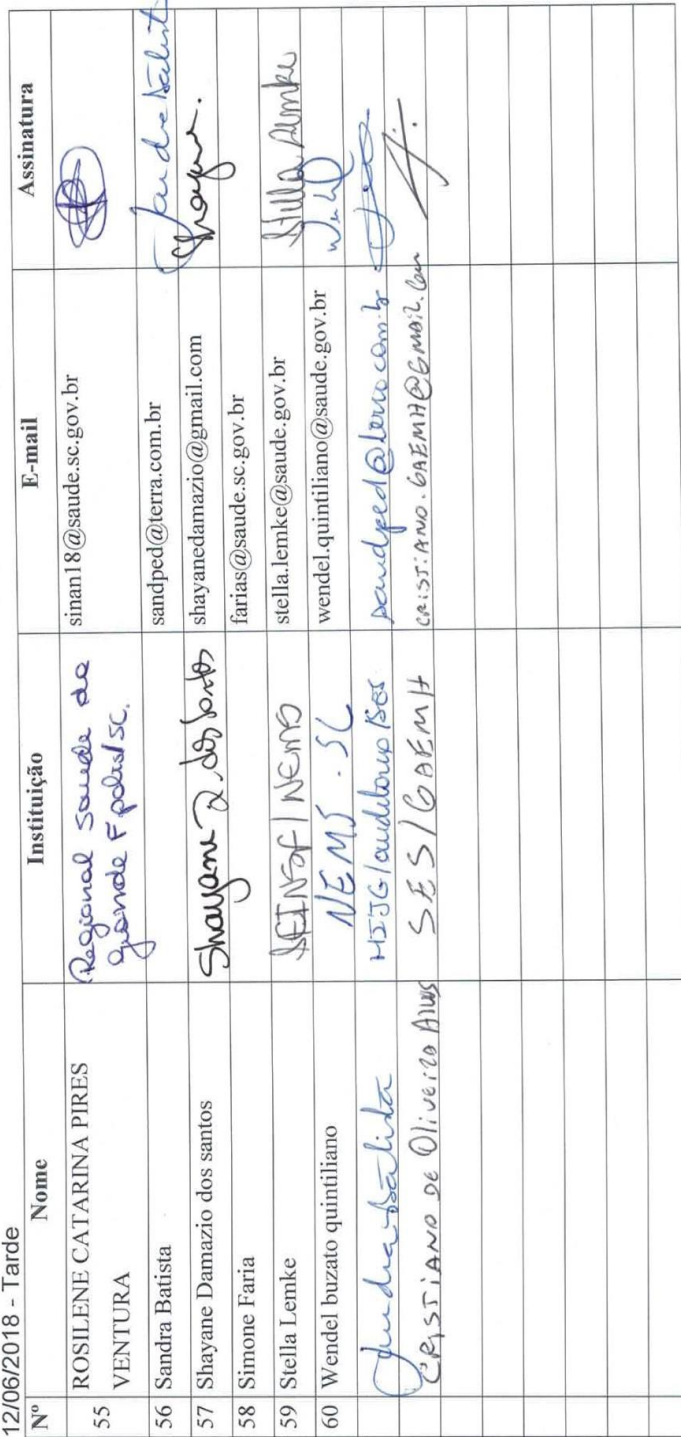 12/06/2018 - Tarde
Nº Nome Instituição E-mail Assinatura
55 ROSILENE CATARINA PIRES VENTURA Regional Saude da Grande Fpolis/SC. sinan18@saude.sc.gov.br
56 Sandra Batista sandped@terra.com.br Sandra Batista
57 Shayane Damazio dos santos Shayane D. dos Santos shayanedamazio@gmail.com Shayane.
58 Simone Faria farias@saude.sc.gov.br
59 Stella Lemke SEINSF/NEMS stella.lemke@saude.gov.br Stella Lemke
60 Wendel buzato quintiliano NEMS - SC wendel.quintiliano@saude.gov.br
Sandra Batista HIJG/auditorio/SES sandped@terra.com.br
CRISTIANO DE OLIVEIRA ALVES SES/GAEMH CRISTIANO.GAEMH@GMAIL.COM